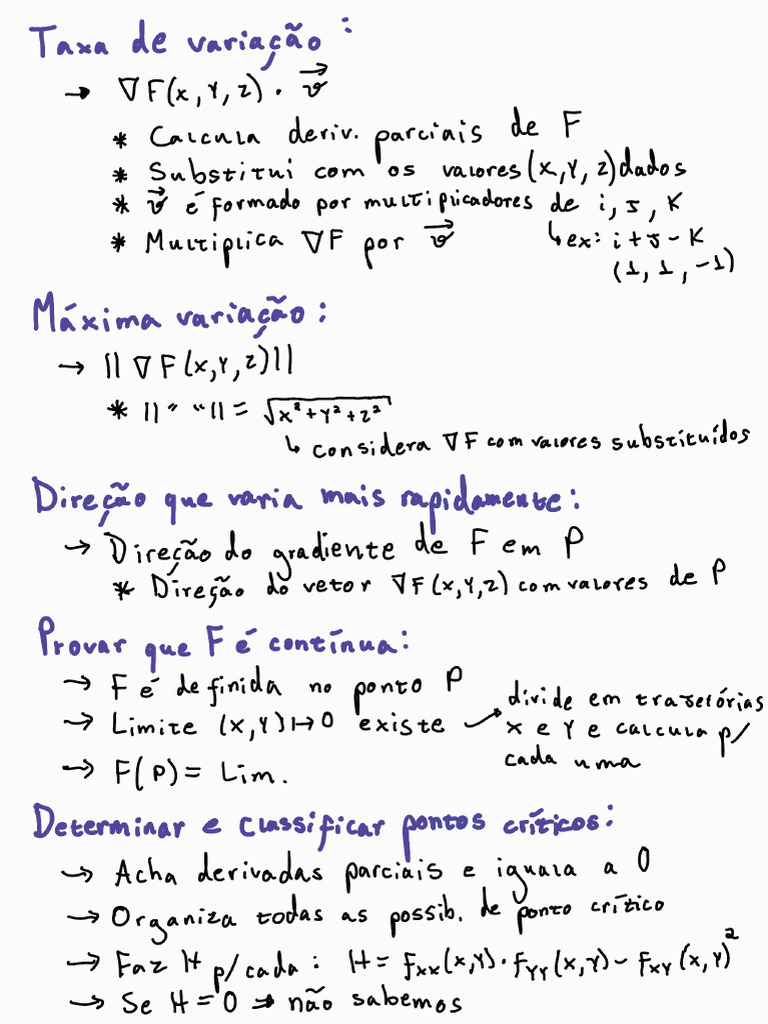 Taxa de variação:
→ ∇F(x, y, z) · v⃗
* Calcula deriv. parciais de F
* Substitui com os valores (x, y, z) dados
* v⃗ é formado por multiplicadores de i, j, k
* Multiplica ∇F por v⃗
↳ ex: i + j - k
(1, 1, -1)
Máxima variação:
→ ||∇F(x, y, z)||
* ||" "|| = √x² + y² + z²
↳ considera ∇F com valores substituídos
Direção que varia mais rapidamente:
→ Direção do gradiente de F em P
* Direção do vetor ∇F(x, y, z) com valores de P
Provar que F é contínua:
→ F é definida no ponto P
→ Limite (x, y) ↦ 0 existe
→ divide em trajetórias
x e y e calcula p/
cada uma
→ F(P) = Lim.
Determinar e classificar pontos críticos:
→ Acha derivadas parciais e iguala a 0
→ Organiza todas as possib. de ponto crítico
→ Faz H p/ cada: H = fxx(x, y) · fyy(x, y) - fxy(x, y)²
→ Se H = 0 → não sabemos